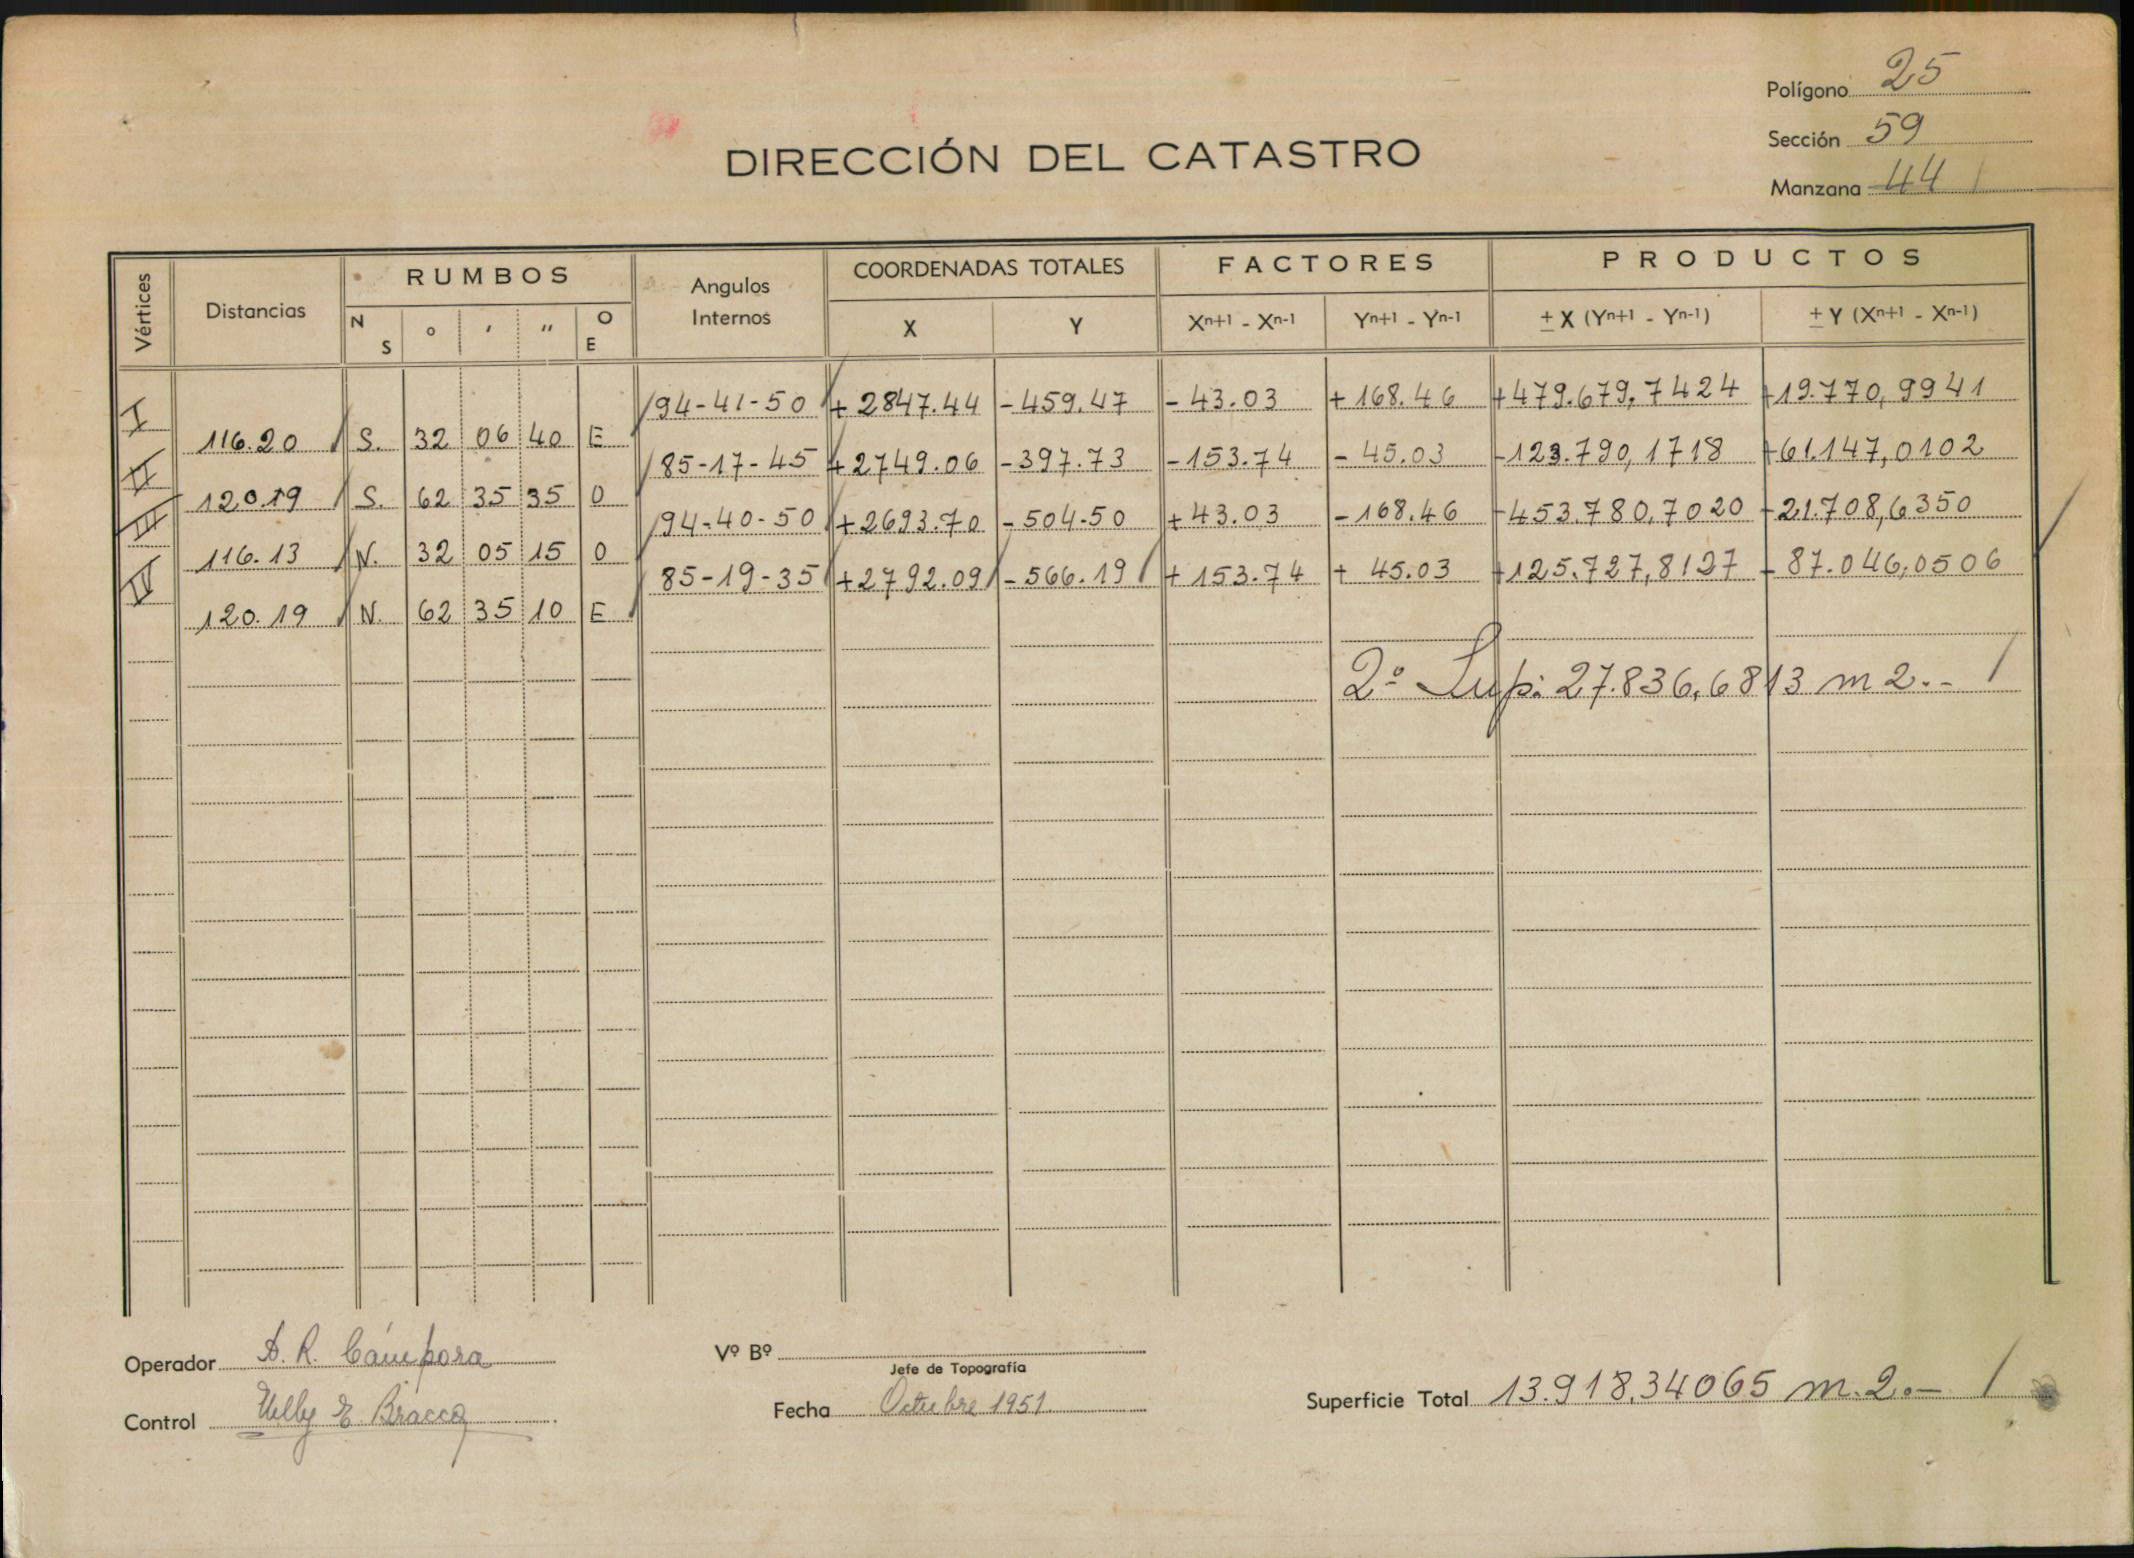 Polígono 25
Sección 59
Manzana 44
DIRECCIÓN DEL CATASTRO
Vértices Distancias RUMBOS Angulos Internos COORDENADAS TOTALES FACTORES PRODUCTOS
N S ° ′ ″ O E X Y Xn+1 - Xn-1 Yn+1 - Yn-1 ± X (Yn+1 - Yn-1) ± Y (Xn+1 - Xn-1)
I 94-41-50 +2847.44 -459.47 -43.03 +168.46 +479.679,7424 +19.770,9941
116.20 S. 32 06 40 E
II 85-17-45 +2749.06 -397.73 -153.74 -45.03 -123.790,1718 +61.147,0102
120.19 S. 62 35 35 O
III 94-40-50 +2693.70 -504.50 +43.03 -168.46 -453.780,7020 -21.708,6350
116.13 N. 32 05 15 O
IV 85-19-35 +2792.09 -566.19 +153.74 +45.03 +125.727,8127 -87.046,0506
120.19 N. 62 35 10 E
2º Sup: 27.836,6813 m2.-
Operador A. R. Cámpora
Vº Bº
Jefe de Topografía
Control Nelly E. Bracco
Fecha Octubre 1951.
Superficie Total 13.918,34065 m.2.-